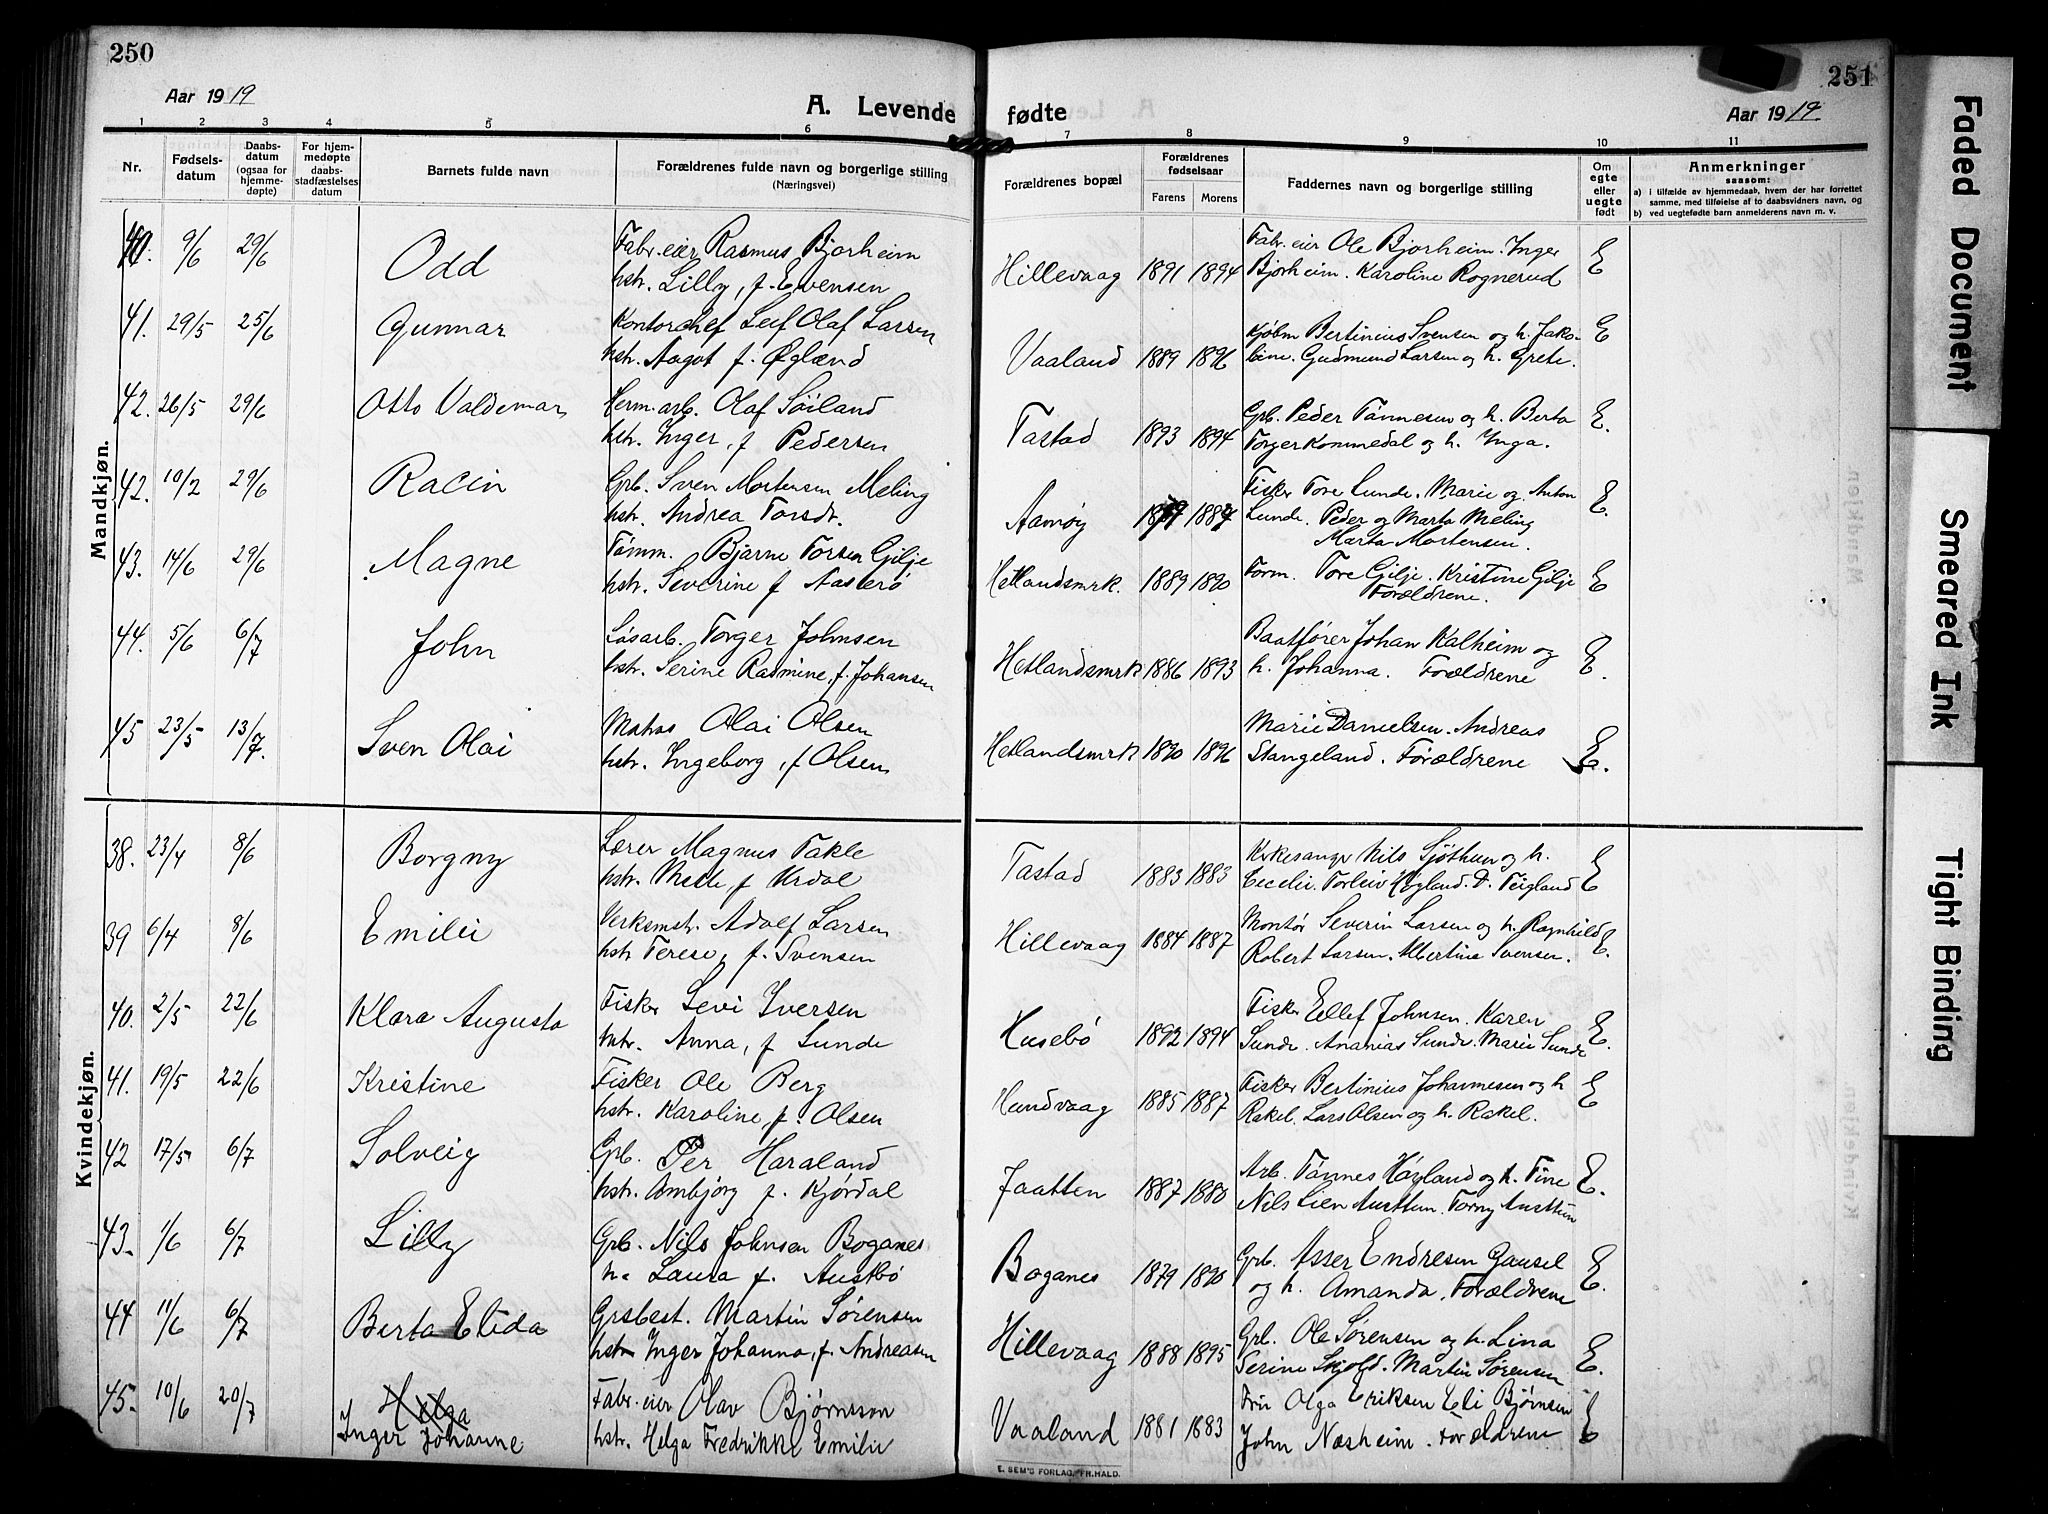 250
251
Aar 1919
A. Levende fødte
Aar 1919
1 2 3 4 5 6 7 8 9 10 11
Nr.
Fødselsdatum
Daabsdatum (ogsaa for hjemmedøpte)
For hjemmedøpte daabsstadfæstelses datum
Barnets fulde navn
Forældrenes fulde navn og borgerlige stilling (Næringsvei)
Forældrenes bopæl
Forældrenes fødselsaar
Farens Morens
Faddernes navn og borgerlige stilling
Om egte eller uegte født
Anmerkninger
saasom:
a) i tilfælde av hjemmedaab, hvem der har forrettet samme, med tilføielse av to daabsvidners navn, og
b) ved uegtefødte barn anmelderens navn m. v.
Mandkjøn.
40. 9/6 29/6 Odd Fabr.eier Rasmus Bjorheim Hillevaag 1891 1894 Fabr.eier Ole Bjorheim. Inger E
hstr. Lilly, f. Evensen Bjorheim. Karoline Rognerud
41. 29/5 25/6 Gunnar Kontorchef Leif Olaf Larsen Vaaland 1889 1896 Kjøbm Bertinius Svensen og h. Jako- E
hstr. Aagot f. Øglænd bine. Gudmund Larsen og h. Grete.
42. 26/5 29/6 Otto Valdemar Herm.arb. Olaf Söiland Tastad 1893 1894 Grb. Peder Tönnesen og h. Berta E.
hstr. Inger, f Pedersen Torger Kommedal og h. Inga.
42. 10/2 29/6 Racin Grb. Sven Mortensen Meling Aamöy 1884 Fisker Tore Lunde. Marie og Anton E.
hstr. Andrea Torsdr. Lunde. Peder og Marta Meling
Marta Mortensen.
43. 14/6 29/6 Magne Tömm. Bjarne Torsen Gilje Hetlandsmrk. 1889 1890 Form. Tore Gilje. Kristine Gilje E
hstr. Severine f Aasterö Forældrene.
44. 5/6 6/7 John Løsarb. Torger Johnsen Hetlandsmrk 1886 1893 Baatfører Johan Kalheim og E.
hstr. Serine Rasmine, f. Johansen h. Johanna. Forældrene
45 23/5 13/7. Sven Olai Matros Olai Olsen Hetlandsmrk 1890 1896 Marie Danielsen. Andreas E.
hstr. Ingeborg, f Olsen Stangeland. Forældrene
Kvindekjøn.
38. 23/4 8/6 Borgny Lærer Magnus Takle Tastad 1883 1883 Kirkesanger Nils Sjöthun og h. E
hstr. Mette f Urdal Cecelie. Torleiv Høgland. D. Teigland
39 6/4 8/6 Emilie Verksmstr. Adolf Larsen Hillevaag 1884 1887 Montør Severin Larsen og h. Ragnhild E.
hstr Terese, f. Svensen Robert Larsen. Albertine Svensen.
40. 2/5 22/6 Klara Augusta Fisker Levi Iversen Husebö 1892 1894 Fisker Ellef Johnsen. Karen E.
hstr. Anna, f Sunde Sunde. Ananias Sunde. Marie Sunde
41. 19/5 22/6 Kristine Fisker Ole Berg Hundvaag 1885 1887 Fisker Bertinius Johannesen og h E
hstr. Karoline, f. Olsen Rakel. Lars Olsen og h. Rakel.
42 17/5 6/7 Solveig Grb. Per Haraland Jaatten 1887 1880 Arb. Tönnes Höyland og h. Tine E.
hstr. Ambjörg f. Kjørdal Nils Lien Austtun. Torny Austtun
43. 1/6 6/7 Lilly Grb. Nils Johnsen Boganes Boganes 1879 1890 Grb. Asser Endresen Gausel E.
h. Laura f. Austbö og h. Amanda. Forældrene
44 11/6 6/7 Berta Elida Grsbest. Martin Sørensen Hillevaag 1888 1895 Grb. Ole Sørensen og h. Lina E.
hstr Inger Johanna, f. Andreasen Serine Skjold. Martin Sørensen
45. 10/6 20/7 Helga Fabr.eier Olav Bjørnsson Vaaland 1881 1883 Frü Olga Eriksen Eli Bjørnsen E
Inger Johanne hstr. Helga Fredrikke Emilie John Næsheim. Forældrene
E. SEM'S FORLAG, FR.HALD.
Faded Document
Smeared Ink
Tight Binding